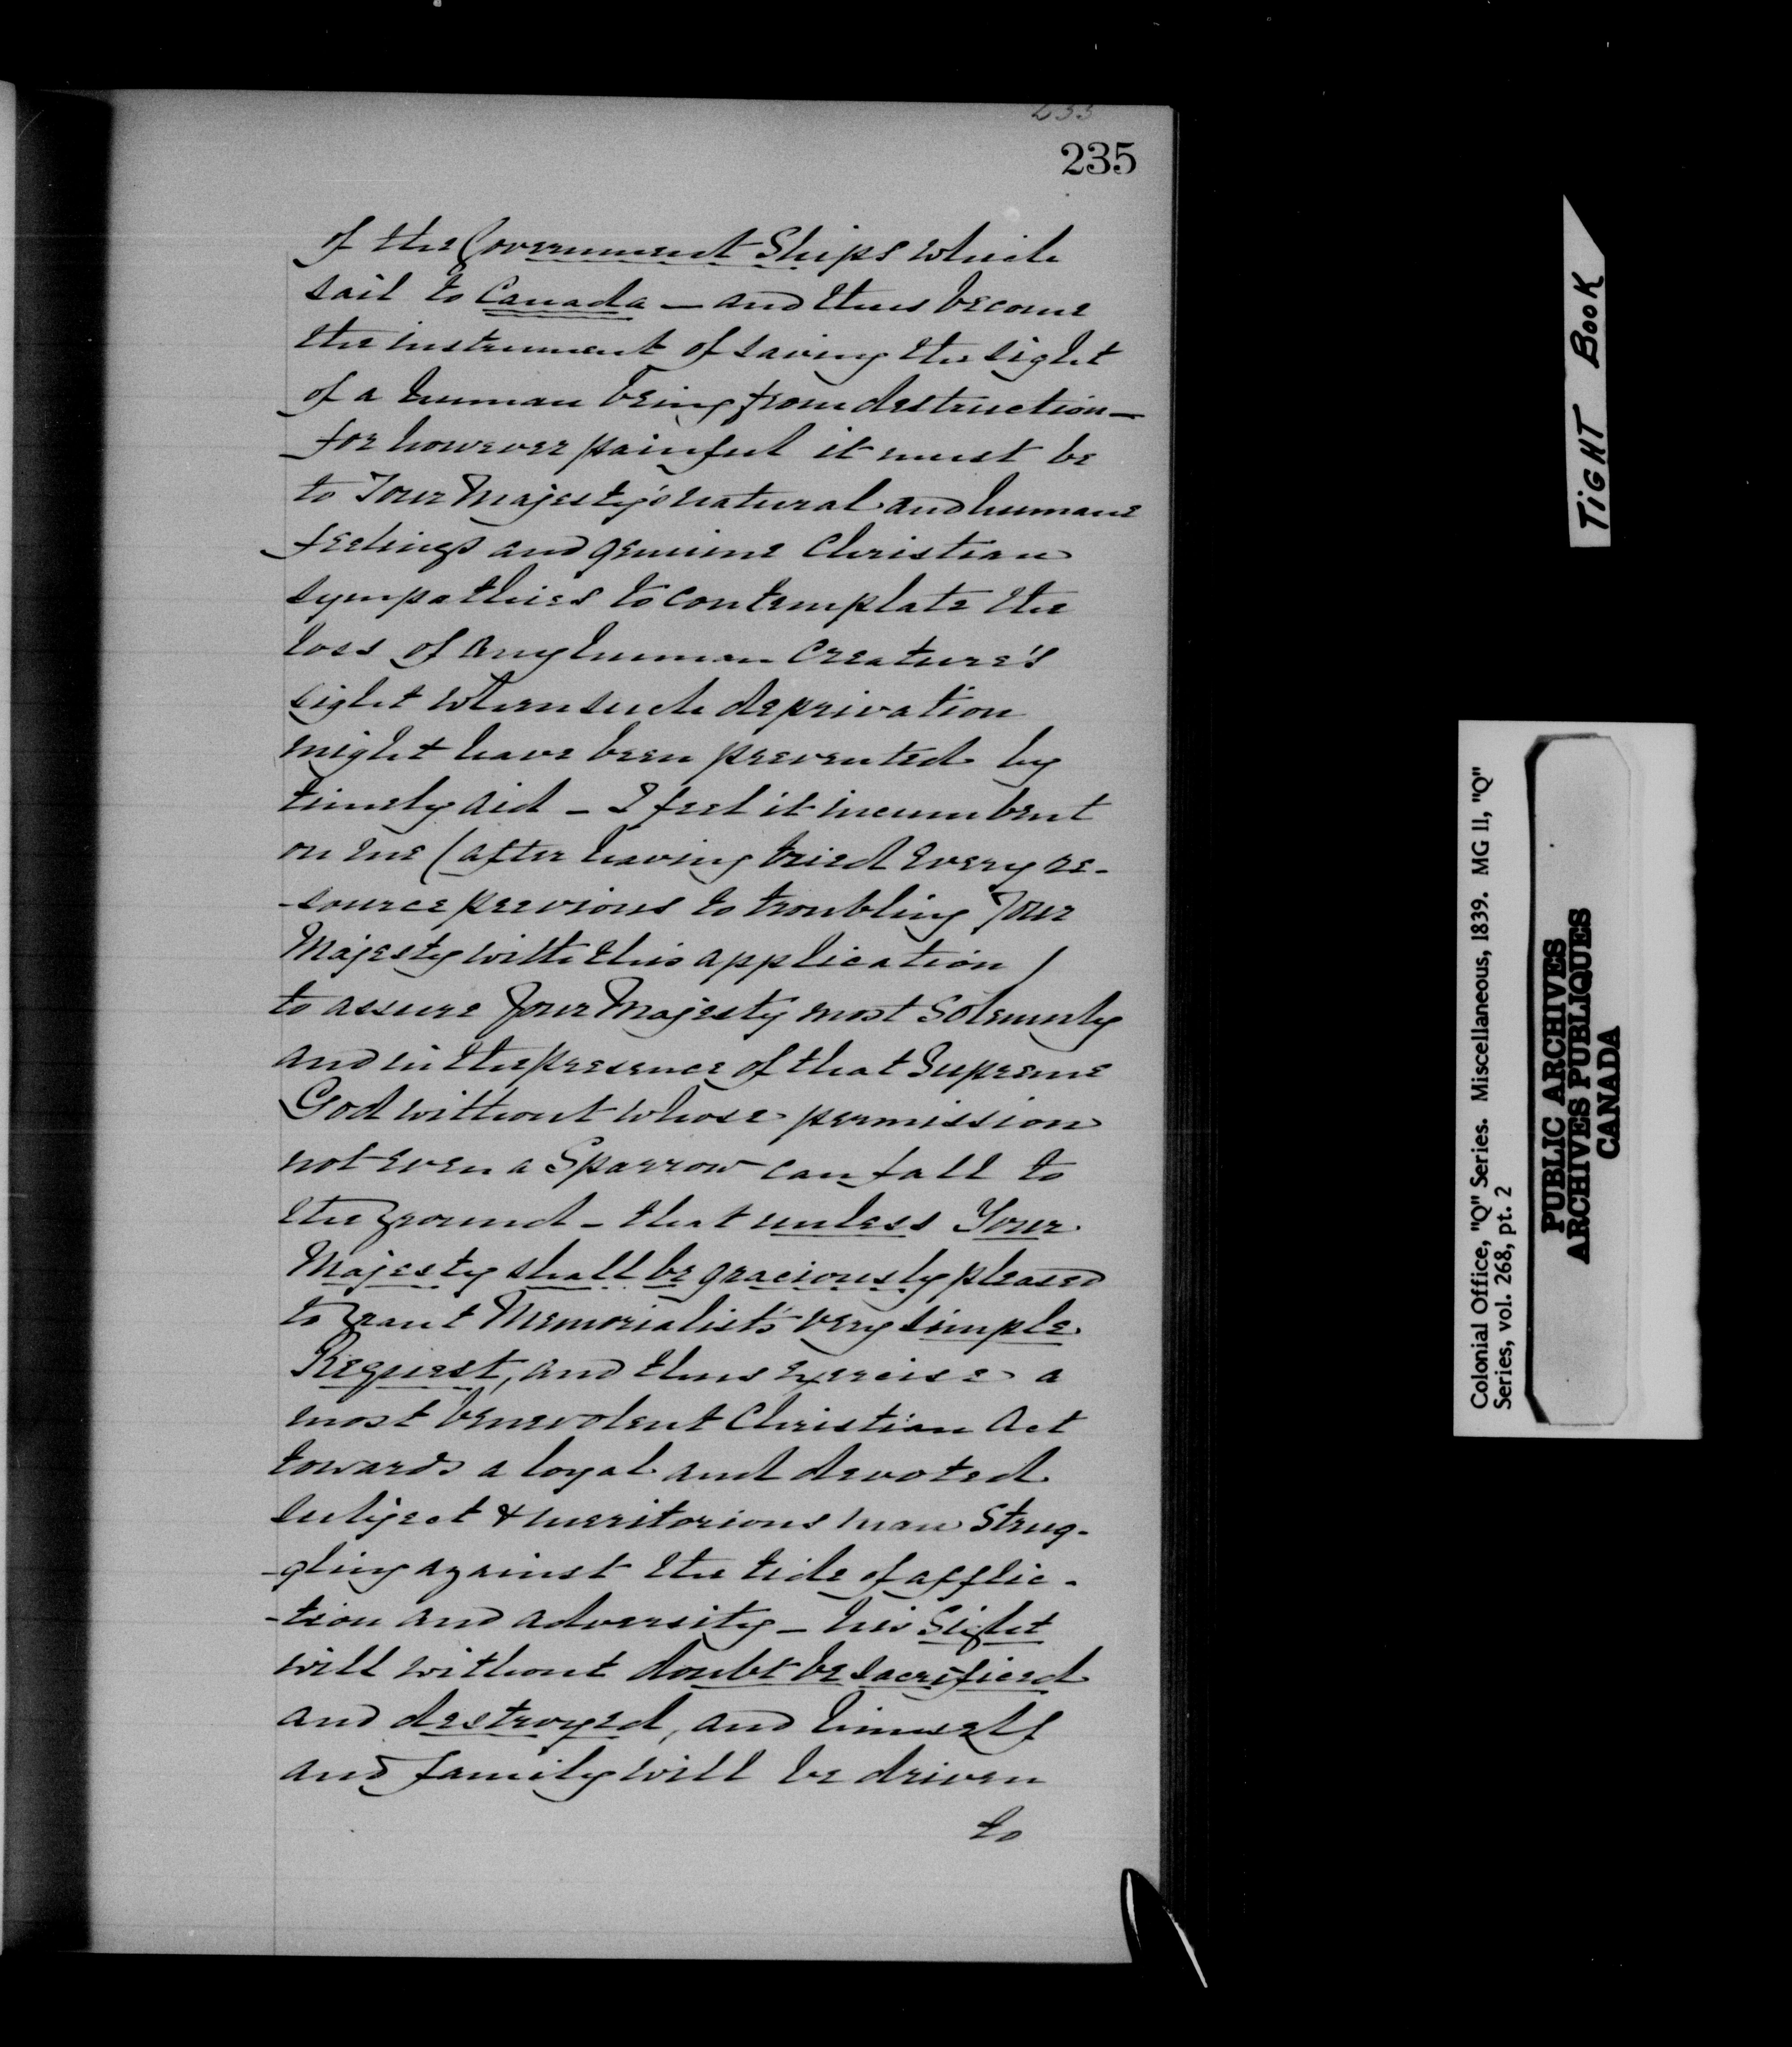 233
235
of the Government Ships which
sail to Canada – and thus become
the instrument of saving the sight
of a human being from destruction –
for however painful it must be
to Your Majesty's natural and humane
feelings and genuine Christian
sympathies to contemplate the
loss of any human Creature's
sight when such deprivation
might have been prevented by
timely aid – I feel it incumbent
on me (after having tried every re-
-source previous to troubling Your
Majesty with this application)
to assure Your Majesty most Solemnly
and in the presence of that Supreme
God without whose permission
not even a Sparrow can fall to
the ground – that unless Your
Majesty shall be graciously pleased
to Grant Memorialist's very simple
Request, and thus exercise a
most benevolent Christian Act
towards a loyal and devoted
subject & meritorious man strug-
-gling against the tide of afflic-
-tion and adversity – his Sight
will without doubt be sacrificed
and destroyed, and himself
and family will be driven
to
TIGHT BOOK
Colonial Office, "Q" Series. Miscellaneous, 1839. MG 11, "Q"
Series, vol. 268, pt. 2
PUBLIC ARCHIVES
ARCHIVES PUBLIQUES
CANADA